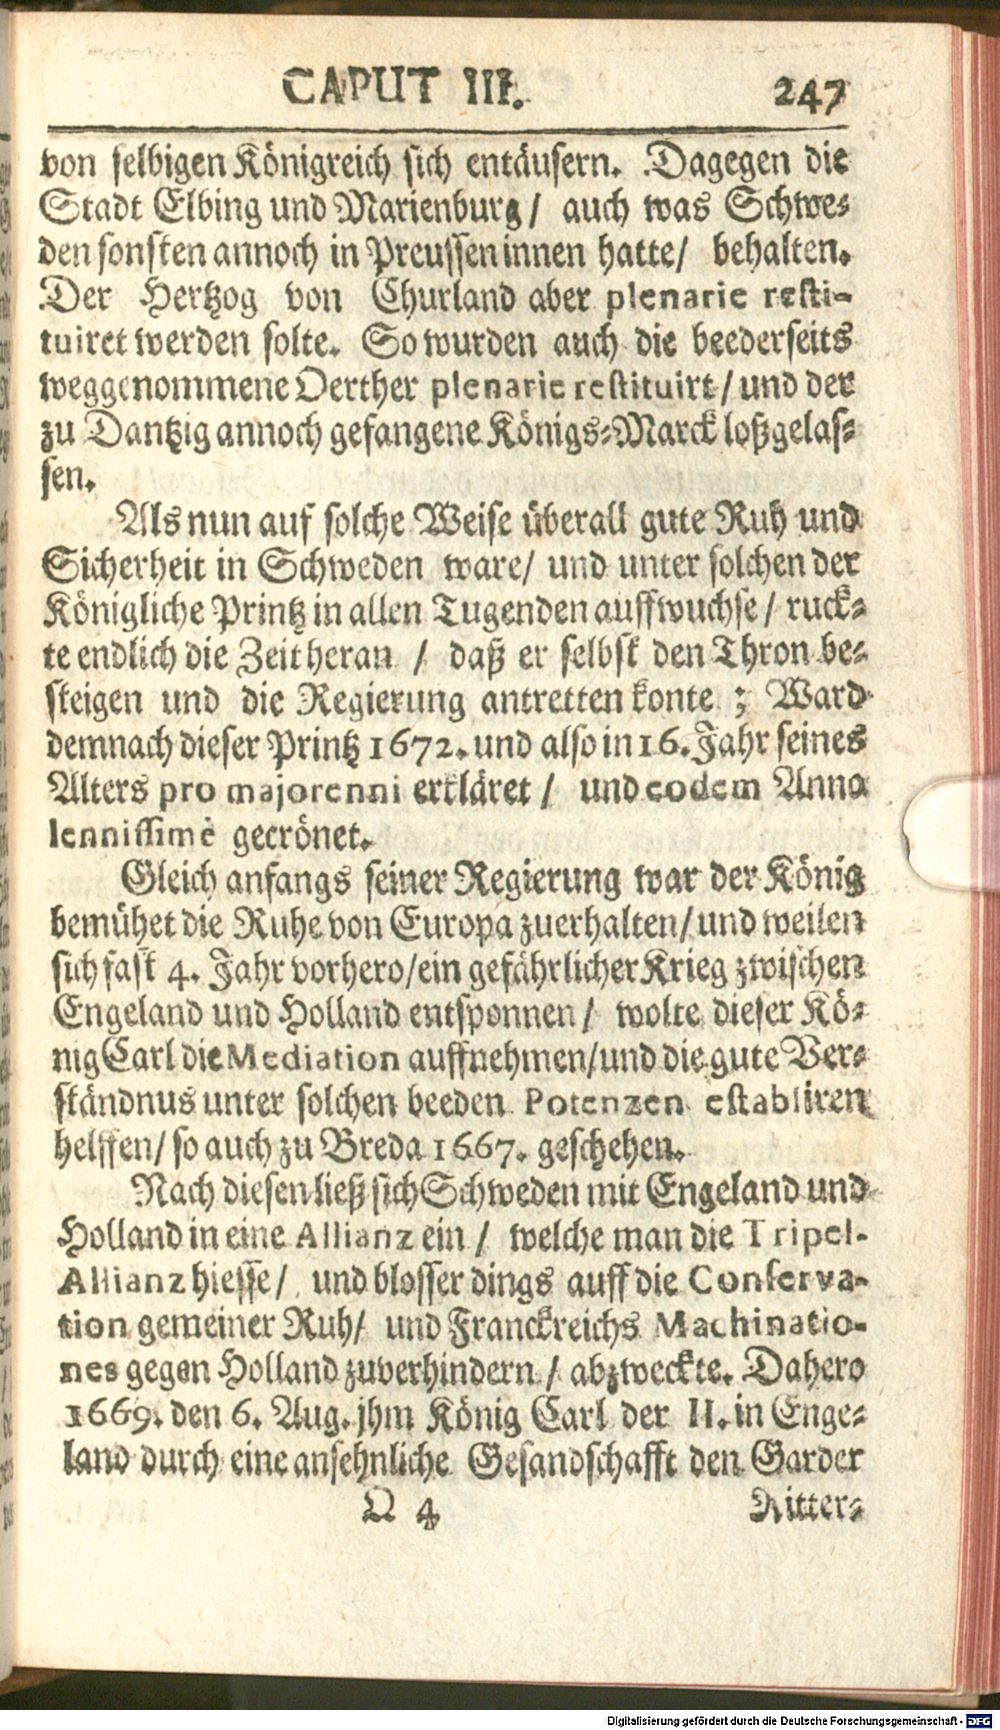 CAPUT III. 247
von selbigen Königreich sich entäusern. Dagegen die
Stadt Elbing und Marienburg / auch was Schwe-
den sonsten annoch in Preussen innen hatte / behalten.
Der Hertzog von Churland aber plenarie resti-
tuiret werden solte. So wurden auch die beederseits
weggenommene Oerther plenarie restituirt / und der
zu Dantzig annoch gefangene Königs-Marck loßgelas-
sen.
Als nun auf solche Weise überall gute Ruh und
Sicherheit in Schweden ware / und unter solchen der
Königliche Printz in allen Tugenden auffwuchse / ruck-
te endlich die Zeit heran / daß er selbst den Thron be-
steigen und die Regierung antretten konte ; Ward
demnach dieser Printz 1672. und also in 16. Jahr seines
Alters pro majorenni erkläret / und eodem Anno
lennissimè gecrönet.
Gleich anfangs seiner Regierung war der König
bemühet die Ruhe von Europa zuerhalten / und weilen
sich fast 4. Jahr vorhero / ein gefährlicher Krieg zwischen
Engeland und Holland entsponnen / wolte dieser Kö-
nig Carl die Mediation auffnehmen / und die gute Ver-
ständnus unter solchen beeden Potenzen establiren
helffen / so auch zu Breda 1667. geschehen.
Nach diesen ließ sich Schweden mit Engeland und
Holland in eine Allianz ein / welche man die Tripel-
Allianz hiesse / und blosser dings auff die Conserva-
tion gemeiner Ruh / und Franckreichs Machinatio-
nes gegen Holland zuverhindern / abzweckte. Dahero
1669. den 6. Aug. jhm König Carl der II. in Enge-
land durch eine ansehnliche Gesandschafft den Garder
Q 4 Ritter-
Digitalisierung gefördert durch die Deutsche Forschungsgemeinschaft - DFG